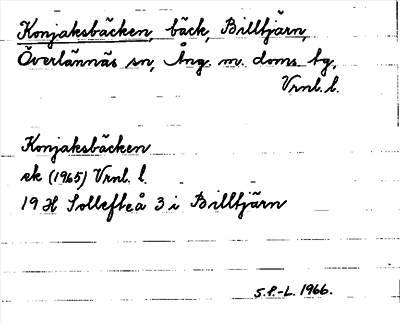 Konjaksbäcken, bäck, Billtjärn,
Överlännäs sn, Ång. m. doms tg.
Vrnl. l.
Konjaksbäcken
ek (1965) Vrnl. l.
19 H Sollefteå 3 i Billtjärn
S.P.-L. 1966.